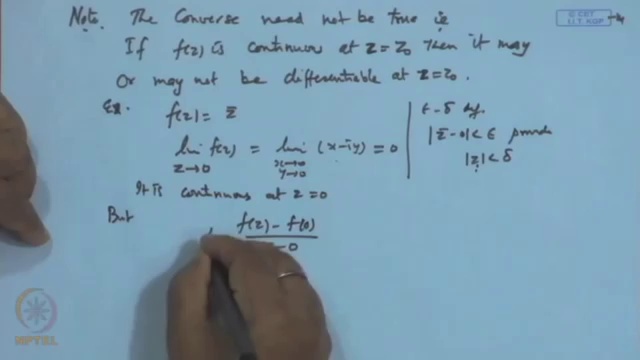 Note. The Converse need not be true ie
© CET
I.I.T. KGP
If f(z) is continuous at z=z₀ then it may
Or may not be differentiable at z=z₀.
Ex. f(z) = z̄
ε-δ def.
lim f(z) = lim (x-iy) = 0
z→0 x→0
y→0
|z̄-0|<ε provide
|z|<δ
It is continuous at z=0
But
f(z) - f(0)
-0
NPTEL